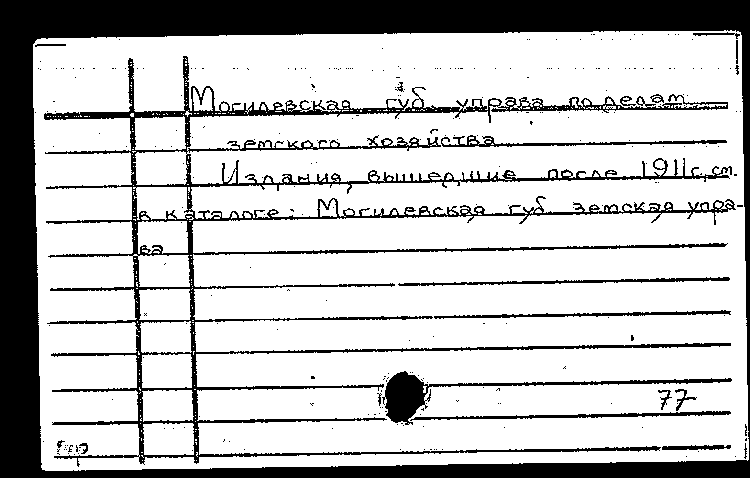 Могилевская губ управа по делам
земского хозяйства
Издания, вышедшие после 1911 г, см.
в каталоге: Могилевская губ земская упра-
ва
77